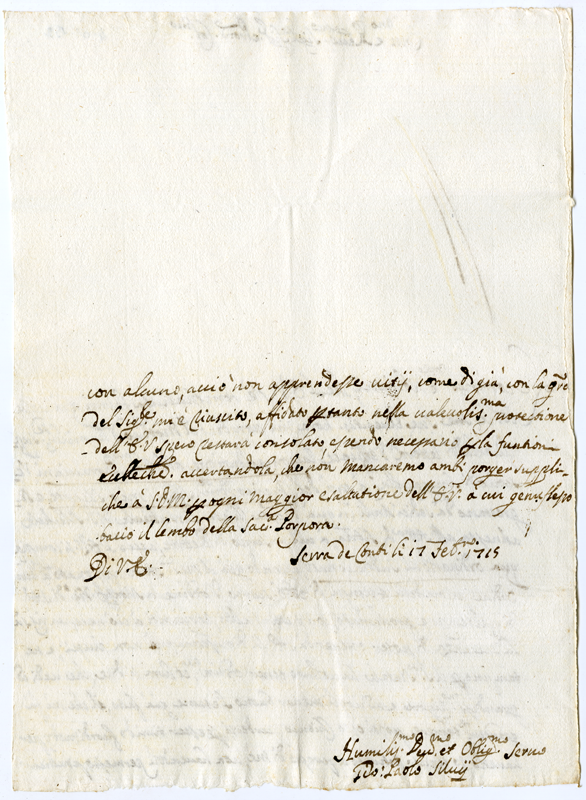 con alcuno, acciò non apprendesse uitij, come di già, con la gra
del Sigre. mi è riuscito, affidato ptanto nella ualeuolisma protectione
dell'E.V. spero restarà consolato essendo necessario p la funtioni
accertandola, che non mancaremo ambi porger suppli-
che à S.D.M. p ogni maggior esaltatione dell'E.V. a cui genuflesso
bacio il lembo della Sac. Porpora.
Di V.E. Serra de Conti li 17 Sebre. 1715
Humilismo Deudmo et Obligmo Seruo
Paolo Siluij